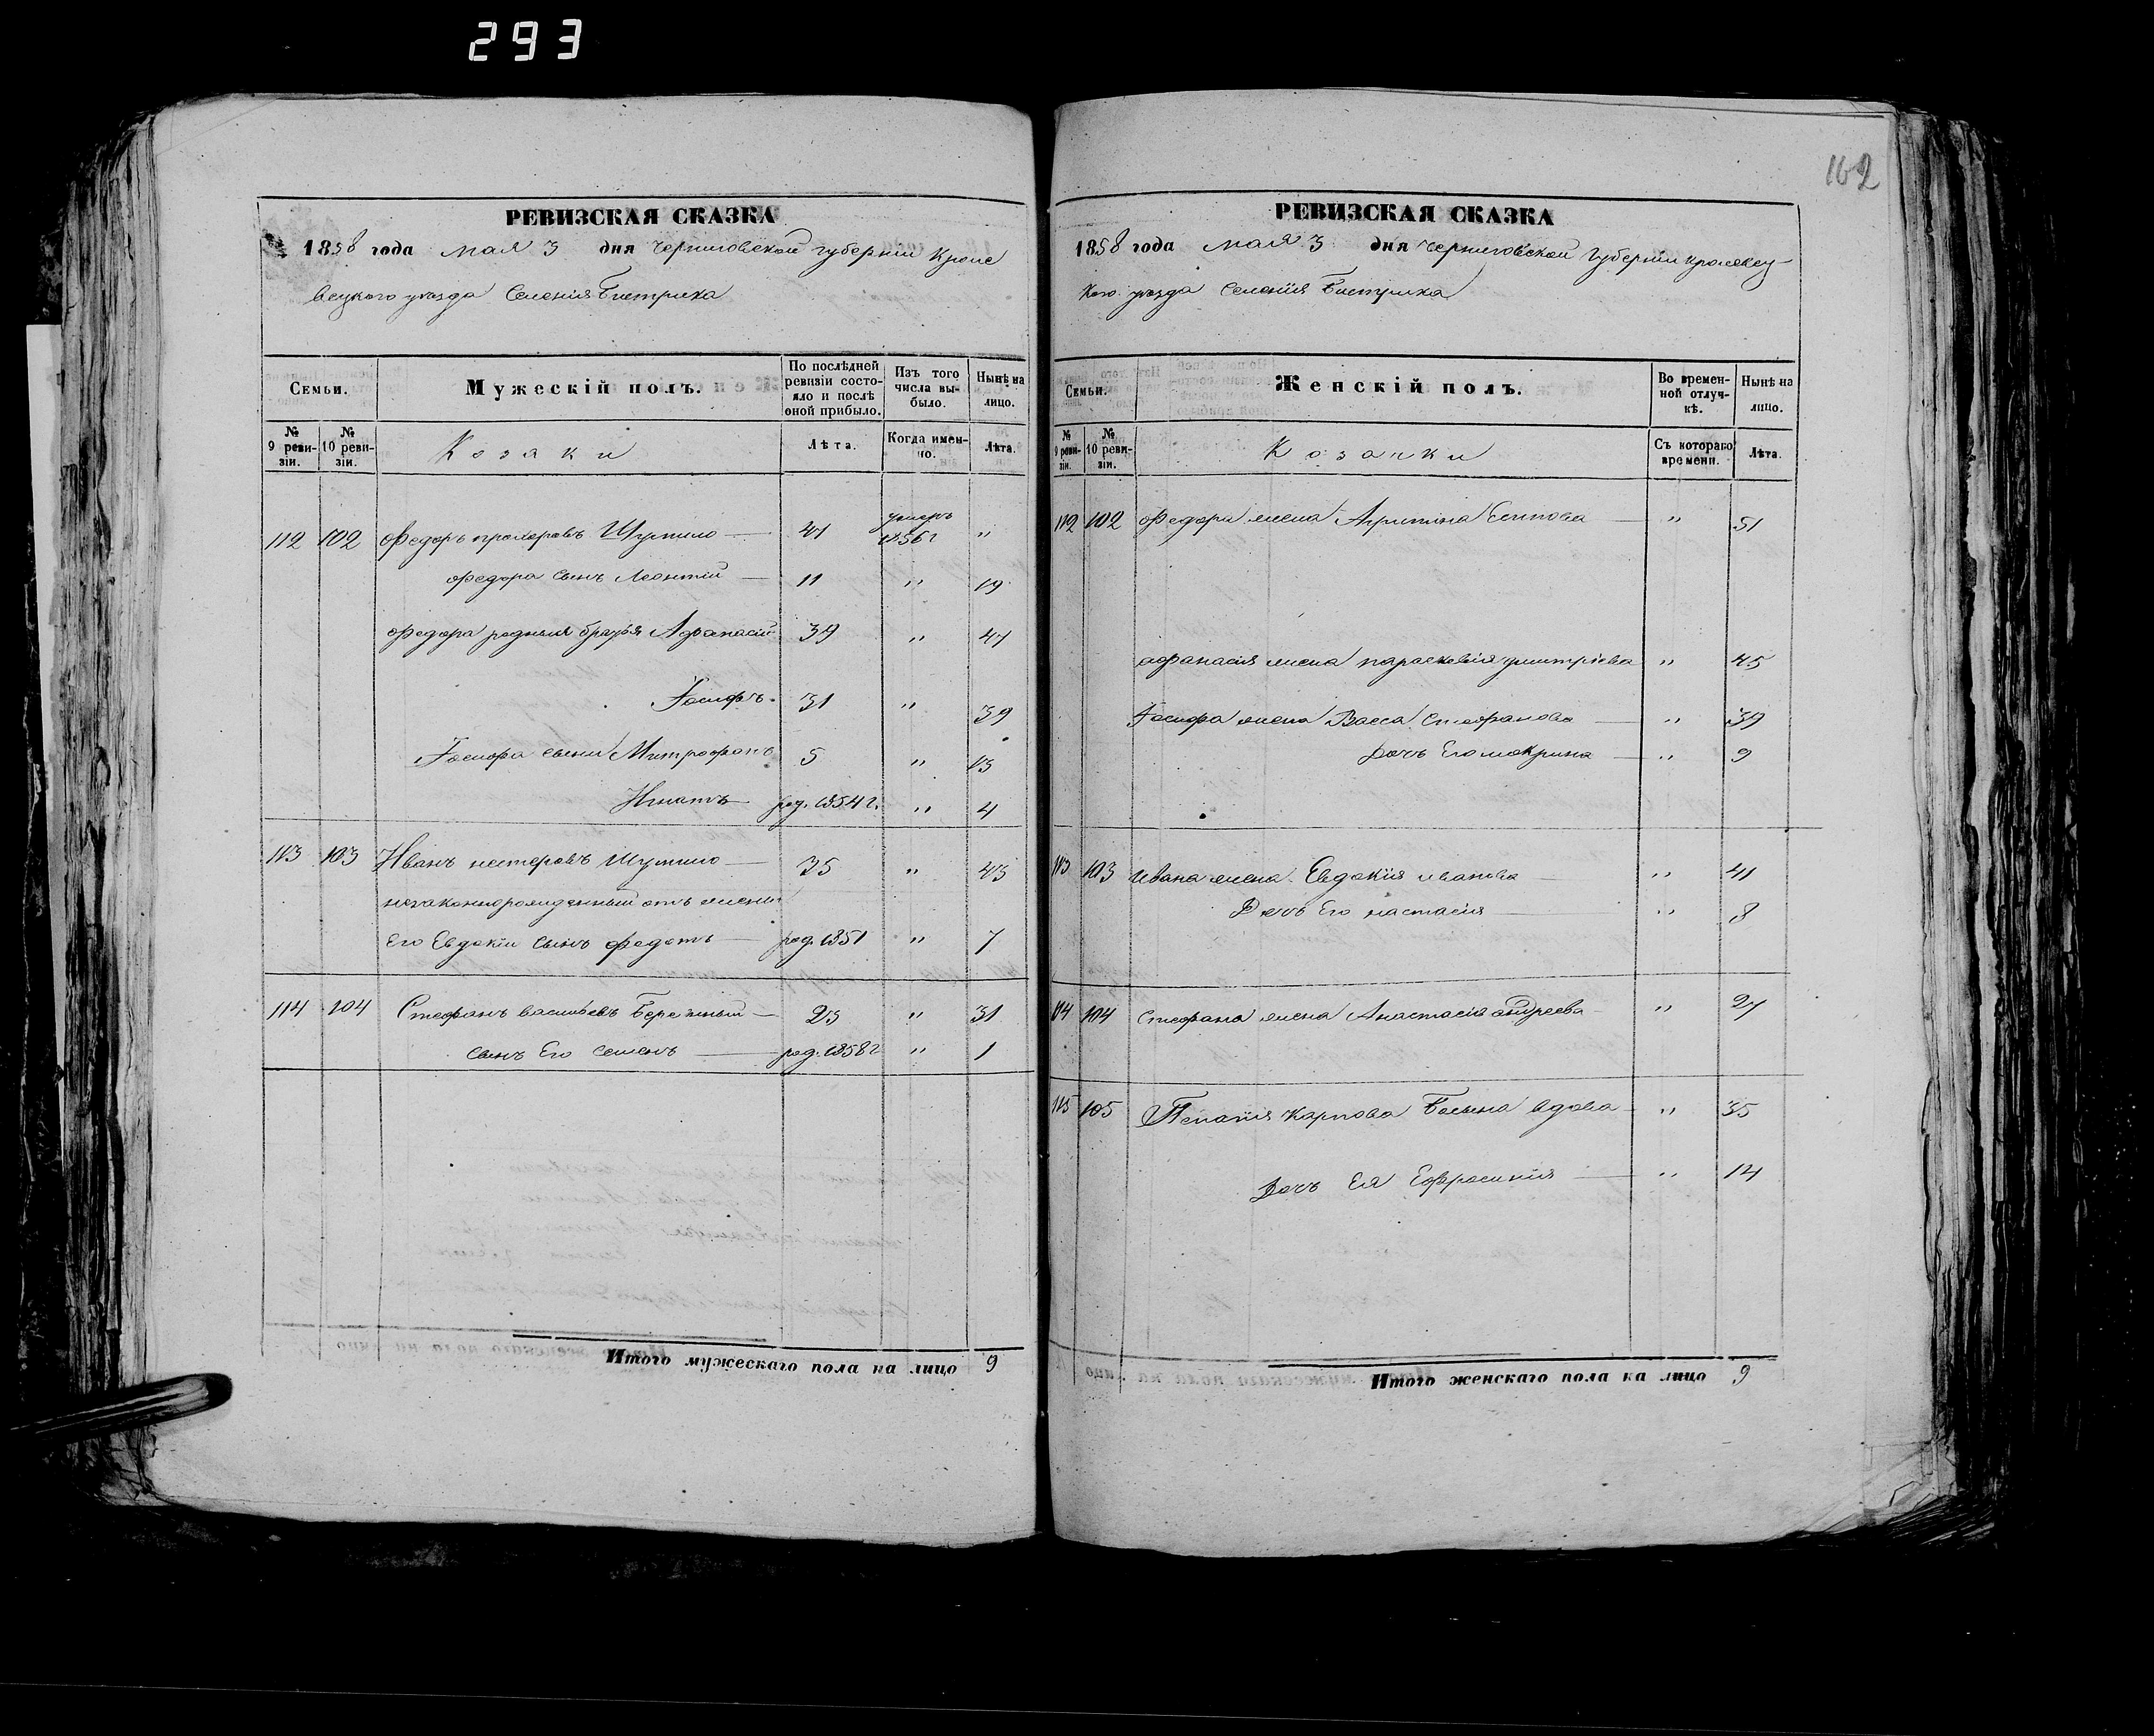 293
162
РЕВИЗСКАЯ СКАЗКА
1858 года мая 3 дня Черниговской губерніи Кроле
вецкого уезда Селенія Бистрика
Семьи.
Мужескій полъ.
По послѣдней ревизіи состояло и послѣ оной прибыло.
Изъ того числа выбыло.
Нынѣ на лицо.
№ 9 ревизіи.
№ 10 ревизіи.
Козаки
Лѣта.
Когда именно.
Лѣта.
112 102 Федоръ прохоровъ Шутило — 41 умеръ 1856 г "
федора сынъ Леонтій — 11 " 19
Федора родныя братья Афанасій 39 " 47
Іосифъ 31 " 39
Іосифа сыны Митрофанъ 5 " 13
Игнатъ род. 1854 г. " 4
113 103 Иванъ нестеровъ Шутило — 35 " 43
незаконнорожденный отъ жены
Его Евдокіи сынъ федотъ — род. 1851 " 7
114 104 Стефанъ васильевъ Бережный — 23 " 31
сынъ Его семенъ — род. 1858 г " 1
Итого мужескаго пола на лицо 9
РЕВИЗСКАЯ СКАЗКА
1858 года мая 3 дня Черниговской Губерніи кролевец-
кого уезда Селенія Бистрика
Семьи.
Женскій полъ.
Во временной отлучкѣ.
Нынѣ на лицо.
№ 9 ревизіи.
№ 10 ревизіи.
Козачки
Съ котораго времени.
Лѣта.
112 102 Федора жена Агрипина — " 51
афанасія жена параскевія дмитріева " 45
Іосифа жена Васса Стефанова — " 39
Дочь Его макрина — " 9
113 103 Ивана жена Евдокія иванова — " 41
Дочь Его настасія — " 8
114 104 Стефана жена Анастасія андреева " 27
115 105 Пелагія Карпова вдова — " 35
Дочь Ея Ефросинія — " 14
Итого женскаго пола на лицо 9